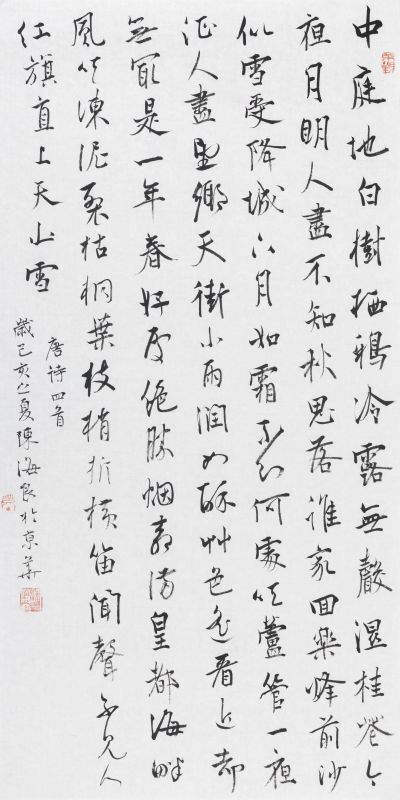 中庭地白樹栖鴉冷露無聲濕桂花今
夜月明人盡不知秋思落誰家回樂烽前沙
似雪受降城下月如霜不知何處吹蘆管一夜
征人盡望鄉天街小雨潤如酥艸色遙看近却
無最是一年春好處絕勝烟柳滿皇都海畔
風吹凍泥裂枯桐葉枝梢折橫笛聞聲不見人
紅旗直上天山雪
唐詩四首
歲己亥之夏陳海良於京華